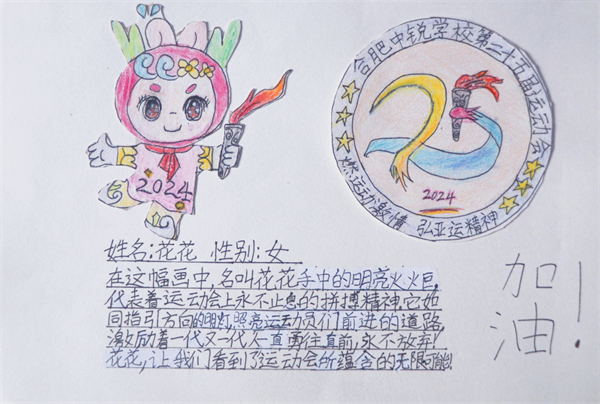 合肥中锐学校第二十五届运动会
25
2024
燃运动激情 弘亚运精神
2024
姓名:花花 性别:女
在这幅画中,名叫花花手中的明亮火炬,
代表着运动会上永不止息的拼搏精神,它如
同指引方向的明灯,照亮运动员们前进的道路,
激励着一代又一代人一直勇往直前,永不放弃!
花花,让我们看到了运动会所蕴含的无限可能!
加
油!